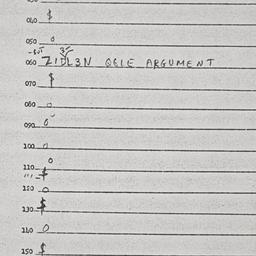 040 $
050 0
060 ZIDL3N OGIE ARGUMENT
070 $
080 0
090 0
100 0
0
110 $
120 0
130 $
140 0
150 $